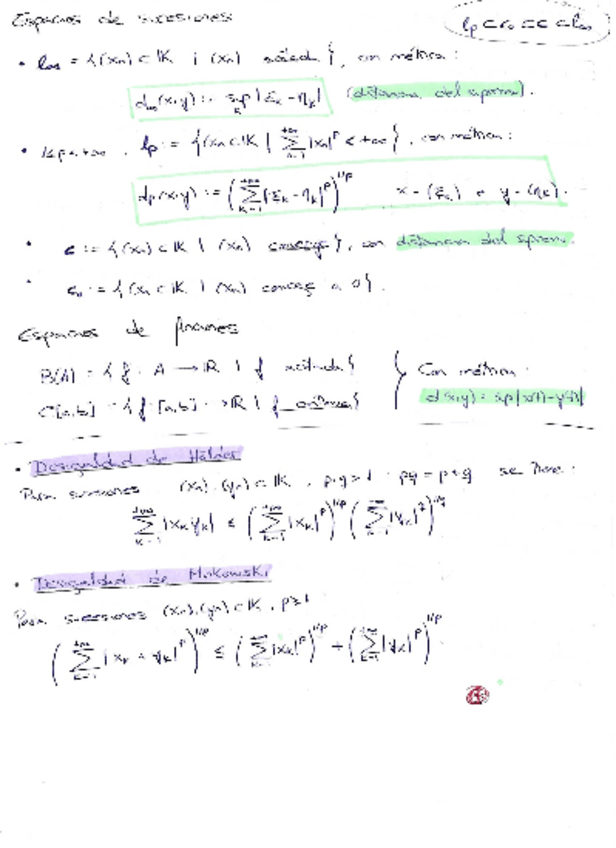 Espacios de sucesiones
lp ⊂ c₀ ⊂ c ⊂ l∞
• l∞ = {(xₙ) ⊂ K | (xₙ) acotada}, con métrica:
d∞(x,y) := sup_k |ξk - ηk| (distancia del supremo).
• 1≤p<+∞, lp := {(xₙ) ⊂ K | Σ_{n=1}^{+∞} |xₙ|^p < +∞}, con métrica:
dp(x,y) := (Σ_{k=1}^{+∞} |ξk - ηk|^p)^{1/p} x=(ξk) e y=(ηk).
• c := {(xₙ) ⊂ K | (xₙ) converge}, con distancia del supremo.
• c₀ := {(xₙ) ⊂ K | (xₙ) converge a 0}.
Espacios de funciones
B(A) = {f: A → R | f acotada}
C[a,b] = {f: [a,b] → R | f continua}
Con métrica:
d(x,y) = sup|x(t)-y(t)|
• Desigualdad de Hölder
Para sucesiones (xₙ),(yₙ) ⊂ K, p,q>1 pq = p+q se tiene:
Σ_{k=1}^{+∞} |xk yk| ≤ (Σ_{k=1}^{+∞} |xk|^p)^{1/p} (Σ_{k=1}^{+∞} |yk|^q)^{1/q}
• Desigualdad de Minkowski
Para sucesiones (xₙ),(yₙ) ⊂ K, p≥1
(Σ_{k=1}^{+∞} |xk + yk|^p)^{1/p} ≤ (Σ_{k=1}^{+∞} |xk|^p)^{1/p} + (Σ_{k=1}^{+∞} |yk|^p)^{1/p}